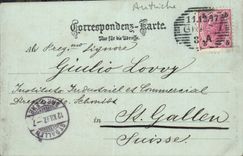 Autriche
Correspondenz-Karte.
Nur für die Adresse.
Al Preg.mo Signore
Giulio Lovvy
Instituto Industriel et Commercial
Schmidt
St. Gallen
Suisse
ST. GALLEN